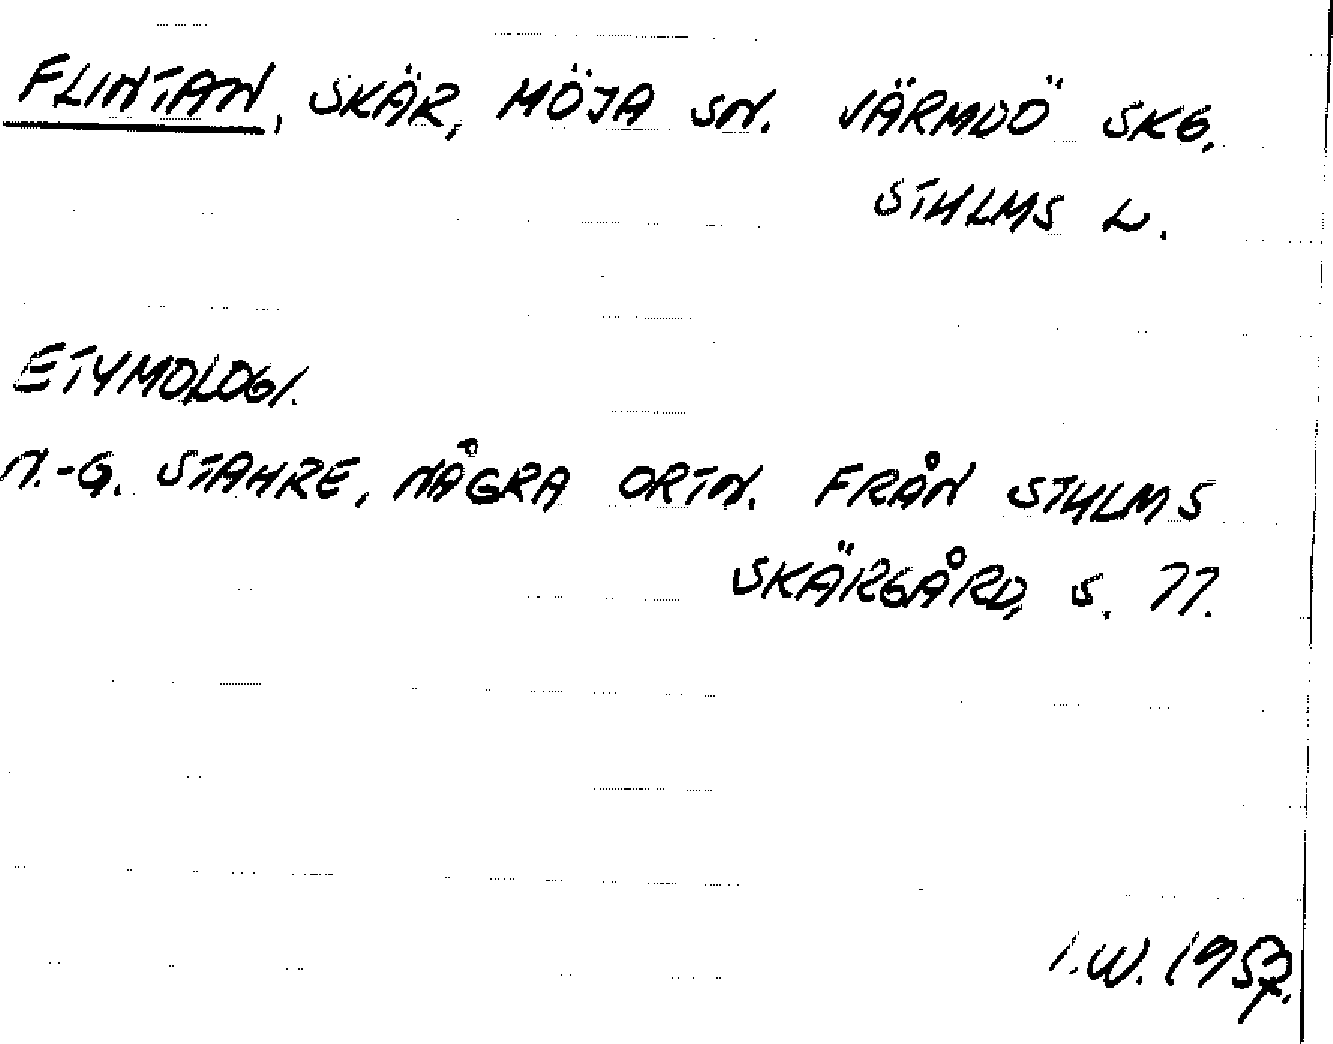 FLINTAN, SKÄR, MÖJA SN. VÄRMDÖ SKG.
STHLMS L.
ETYMOLOGI.
N.-G. STAHRE, NÅGRA ORTN. FRÅN STHLMS
SKÄRGÅRD, S. 77.
I.W. 1957.